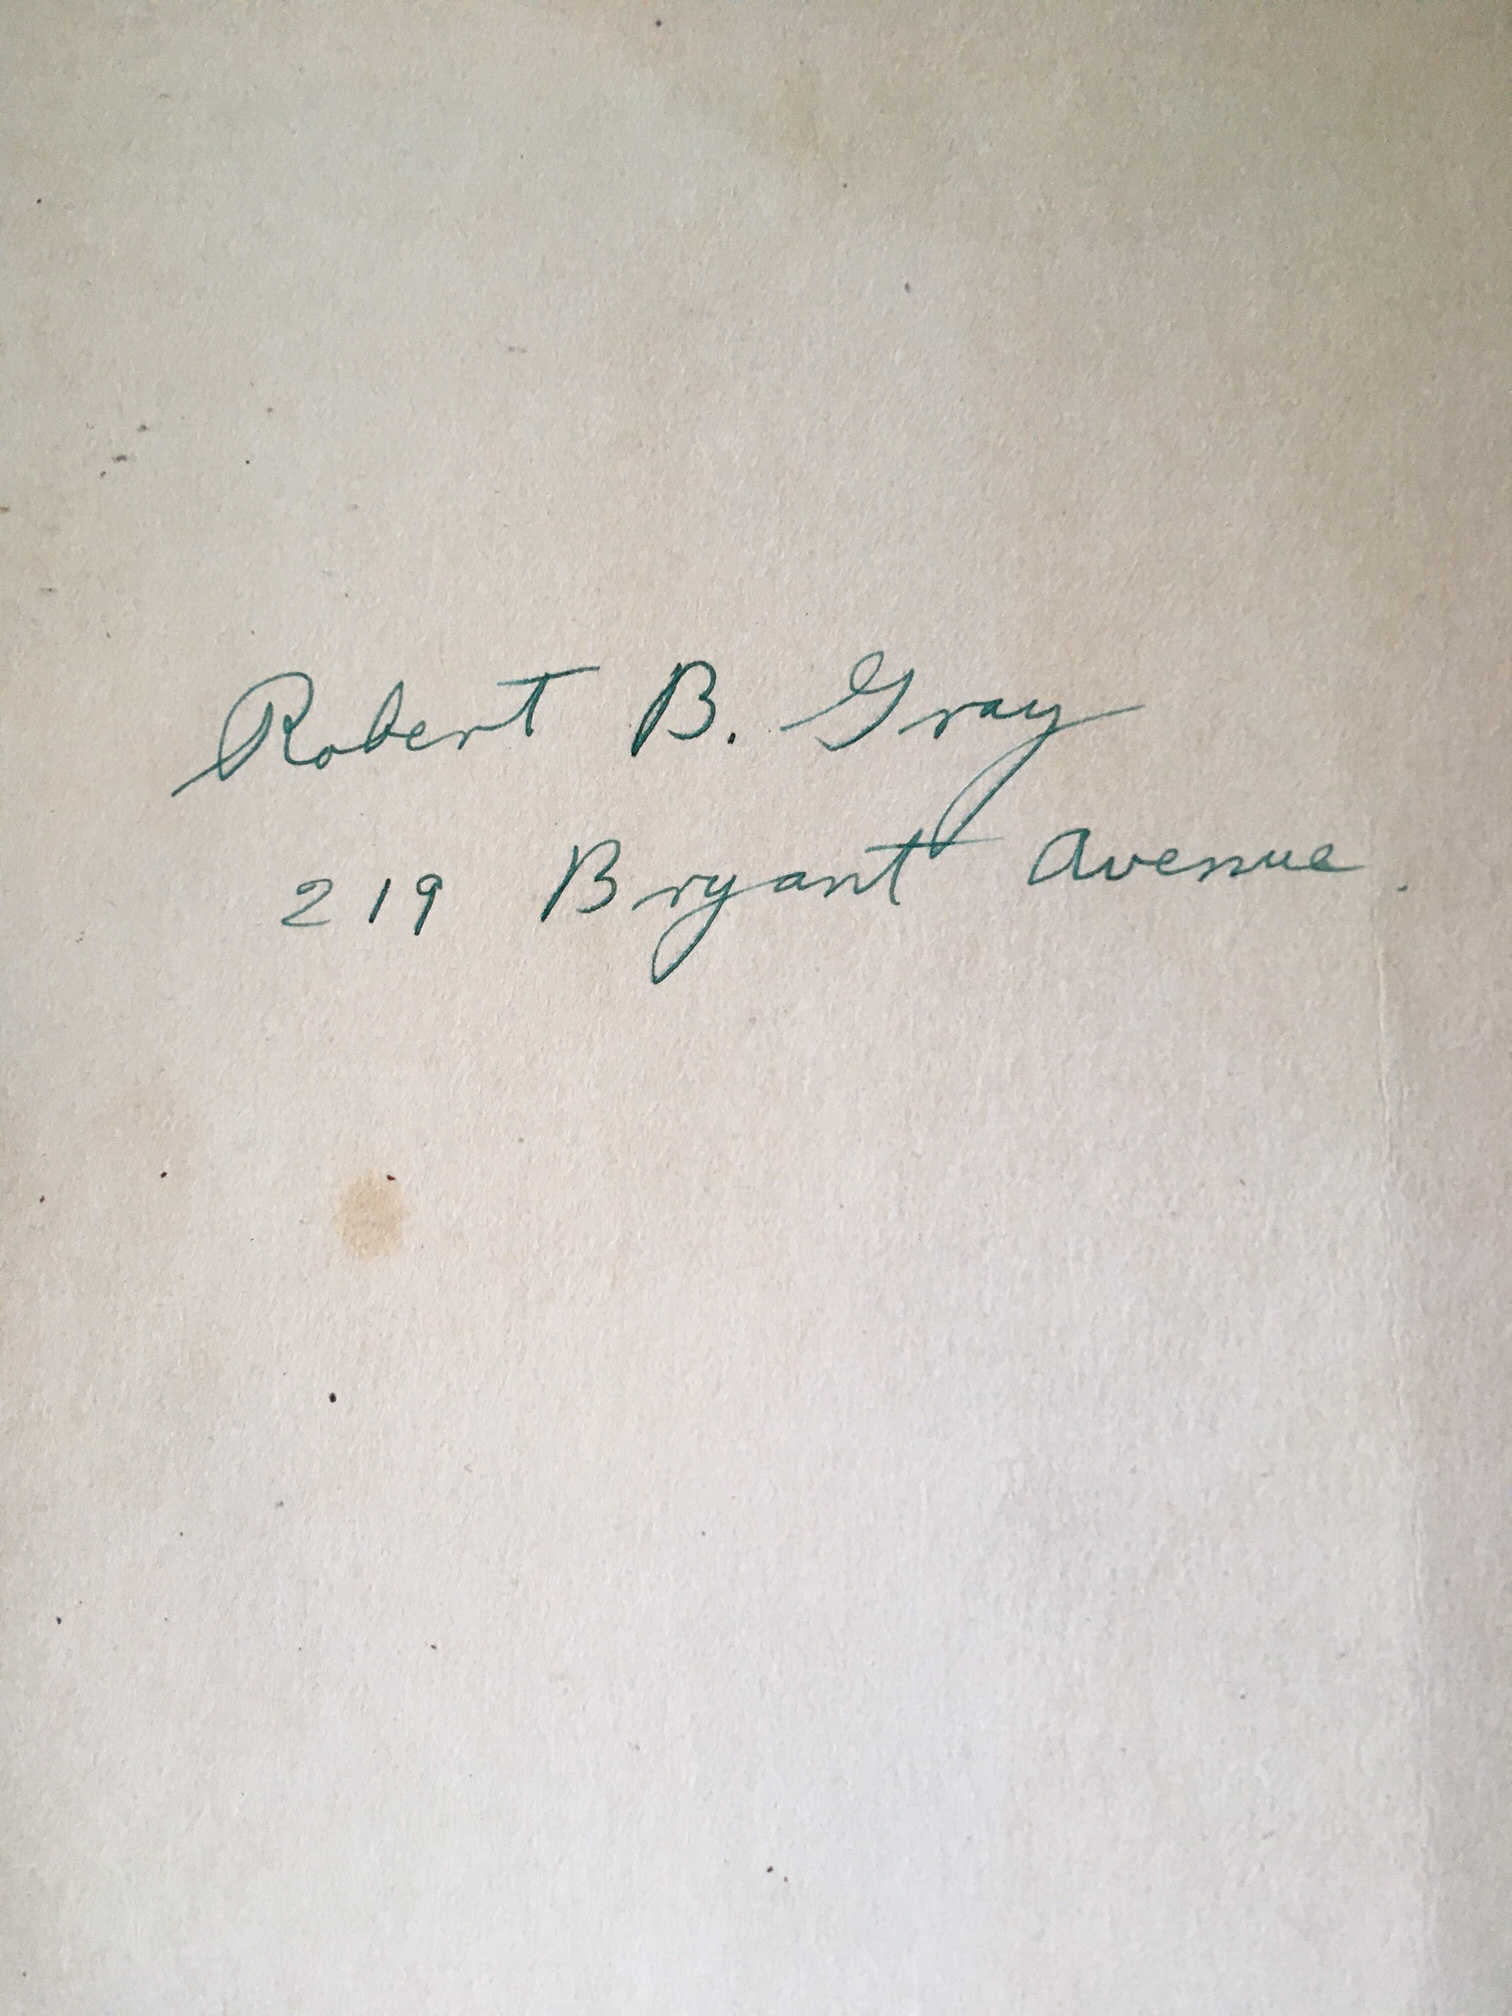 Robert B. Gray
219 Bryant Avenue.